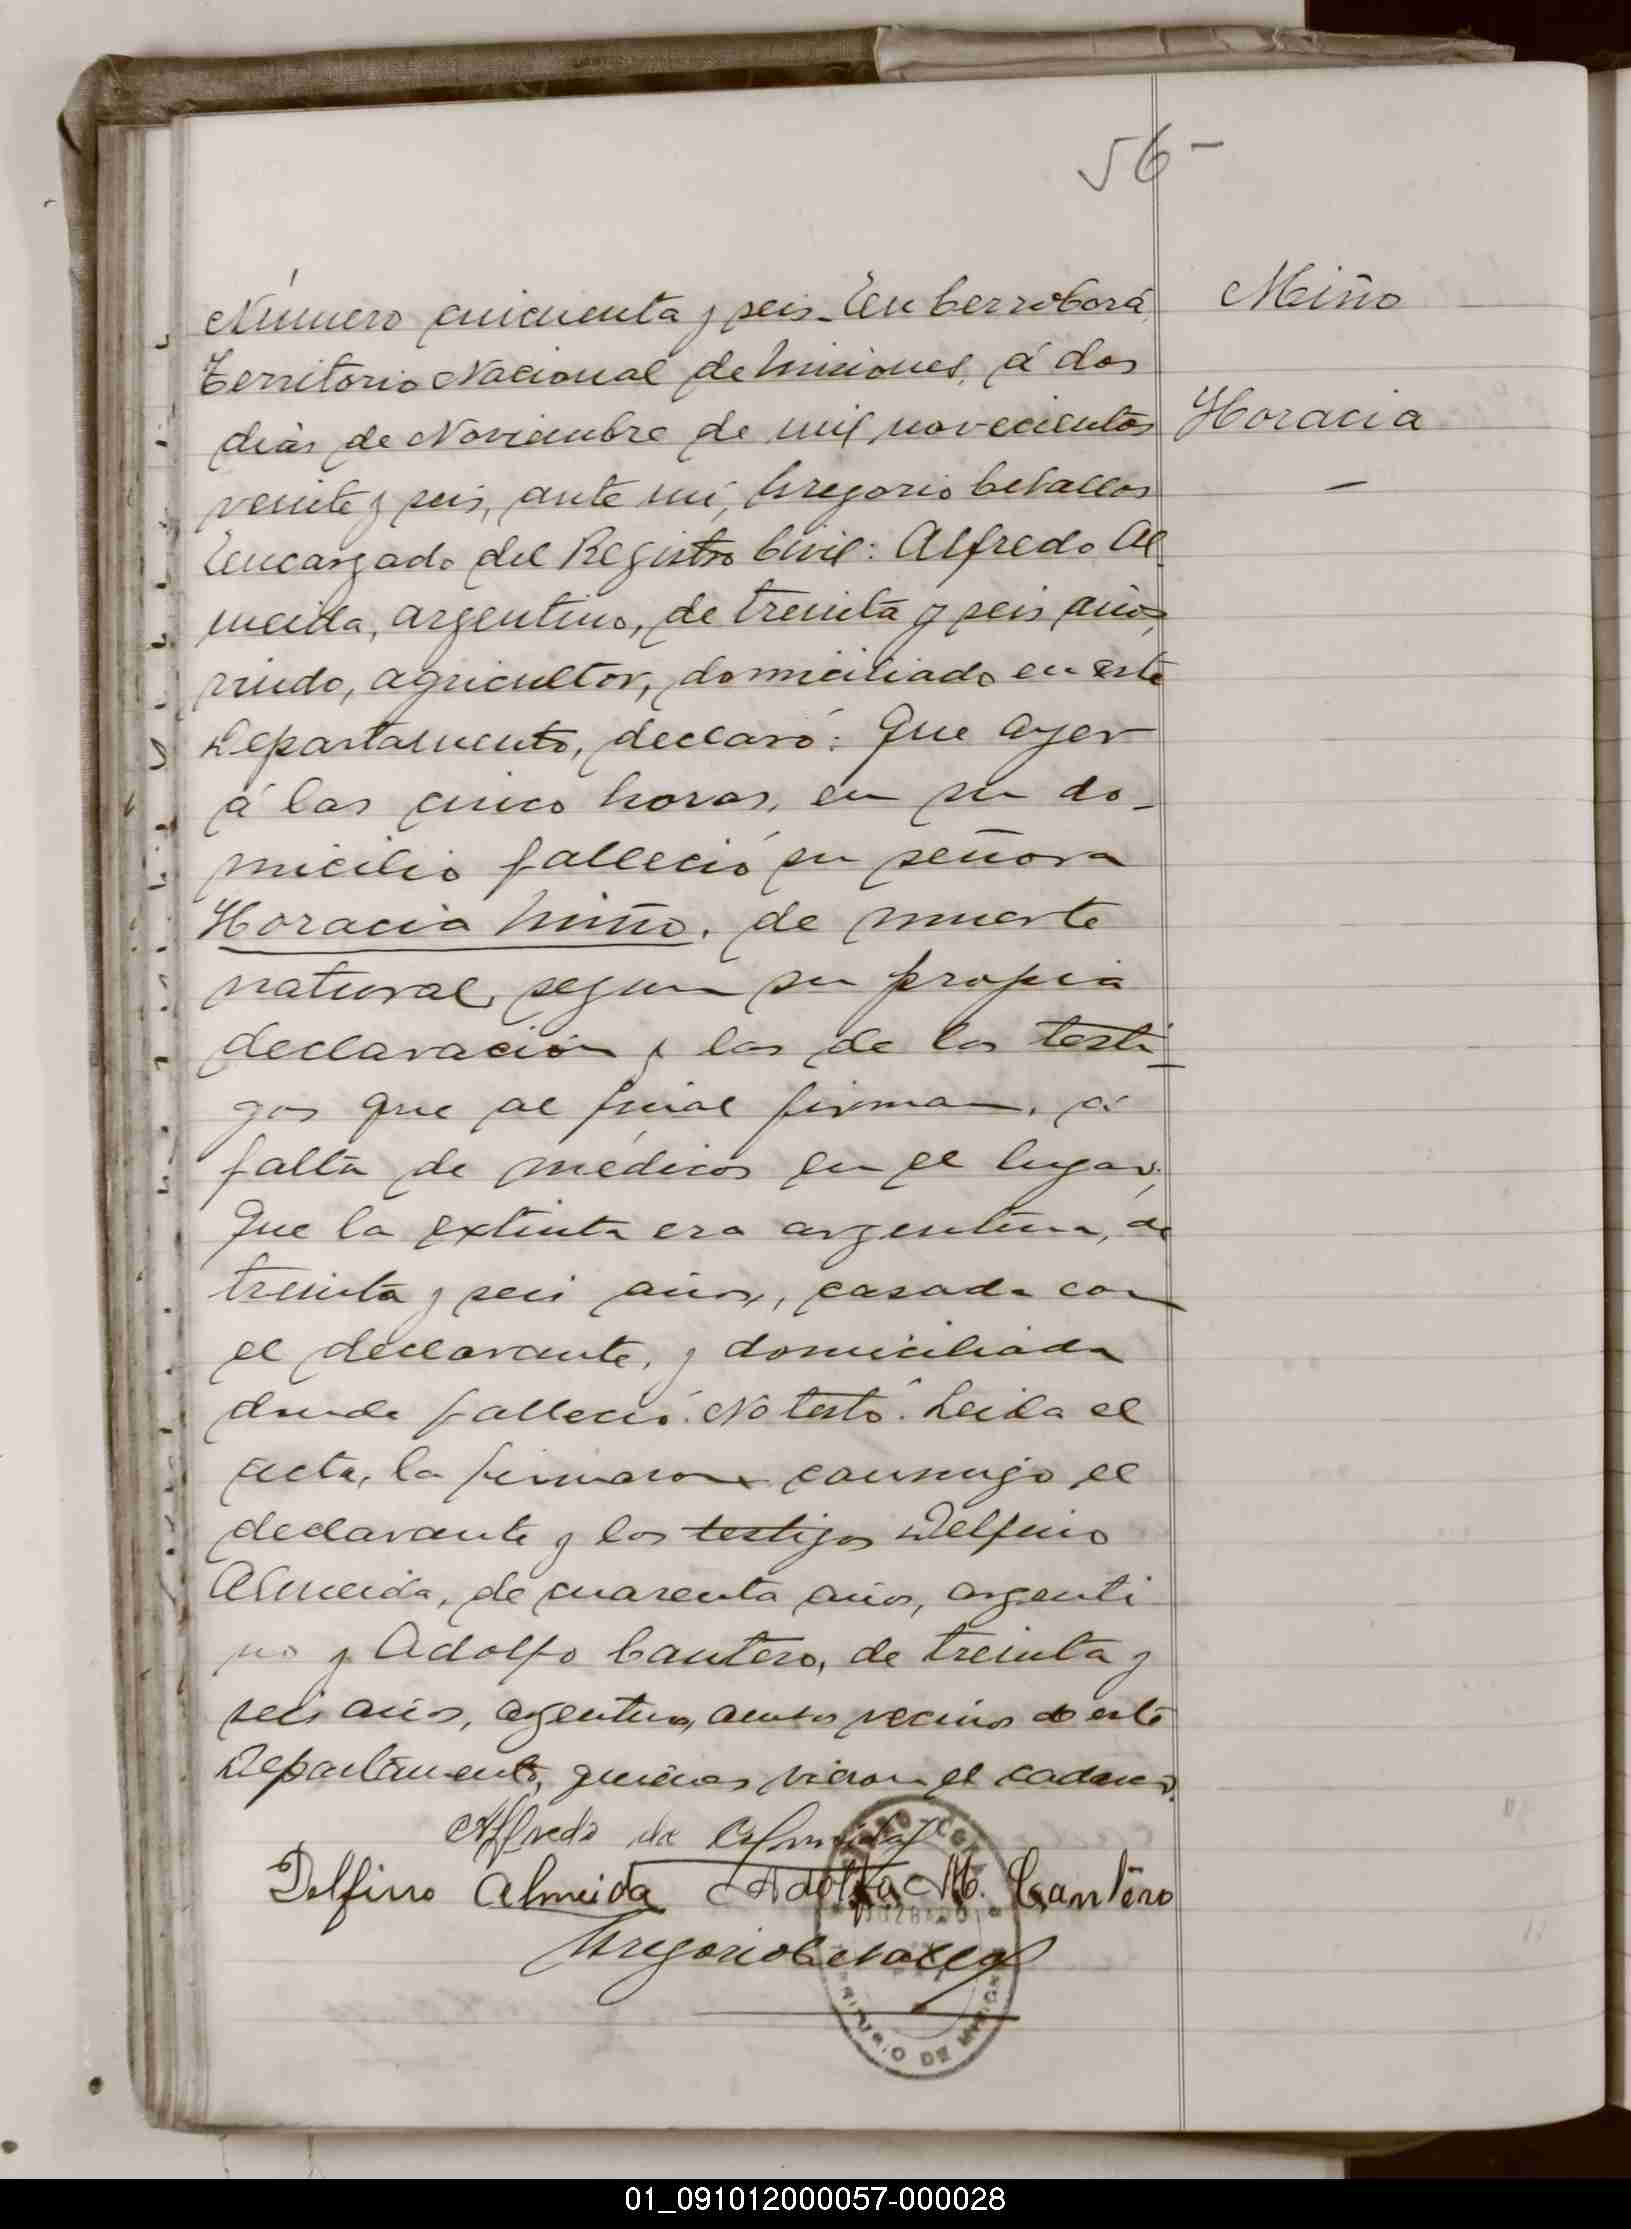 56-
Número cincuenta y seis_ En Cerro Corá,
Territorio Nacional de Misiones, á dos
dias de Noviembre de mil novecientos
veinte y seis, ante mí, Gregorio Cevallos
Encargado del Registro Civil: Alfredo Al-
meida, argentino, de treinta y seis años,
viudo, agricultor, domiciliado en este
Departamento, declaró: Que ayer
á las cinco horas, en su do-
micilio falleció su señora
Horacia Miño, de muerte
natural, segun su propia
declaración y las de los testi-
gos que al final firman, á
falta de médicos en el lugar;
Que la extinta era argentina, de
treinta y seis años, casada con
el declarante, y domiciliada
donde falleció. No testó. Leida el
acta, la firmaron conmigo el
declarante y los testigos Delfino
Almeida, de cuarenta años, argenti-
no y Adolfo Cantero, de treinta y
seis años, argentino, ambos vecinos de este
Departamento, quienes vieron el cadaver.
Miño
Horacia
Alfredo de Almeida
Delfino Almeida Adolfo M. Cantero
Gregorio Cevallos
01_091012000057-000028